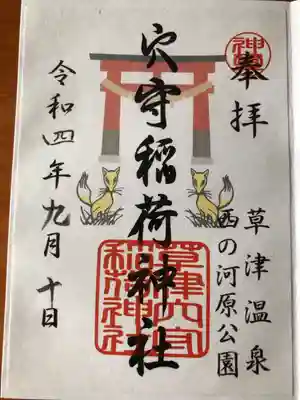 奉拝
草津温泉
西の河原公園
穴守稲荷神社
稲荷神社
令和四年九月十日